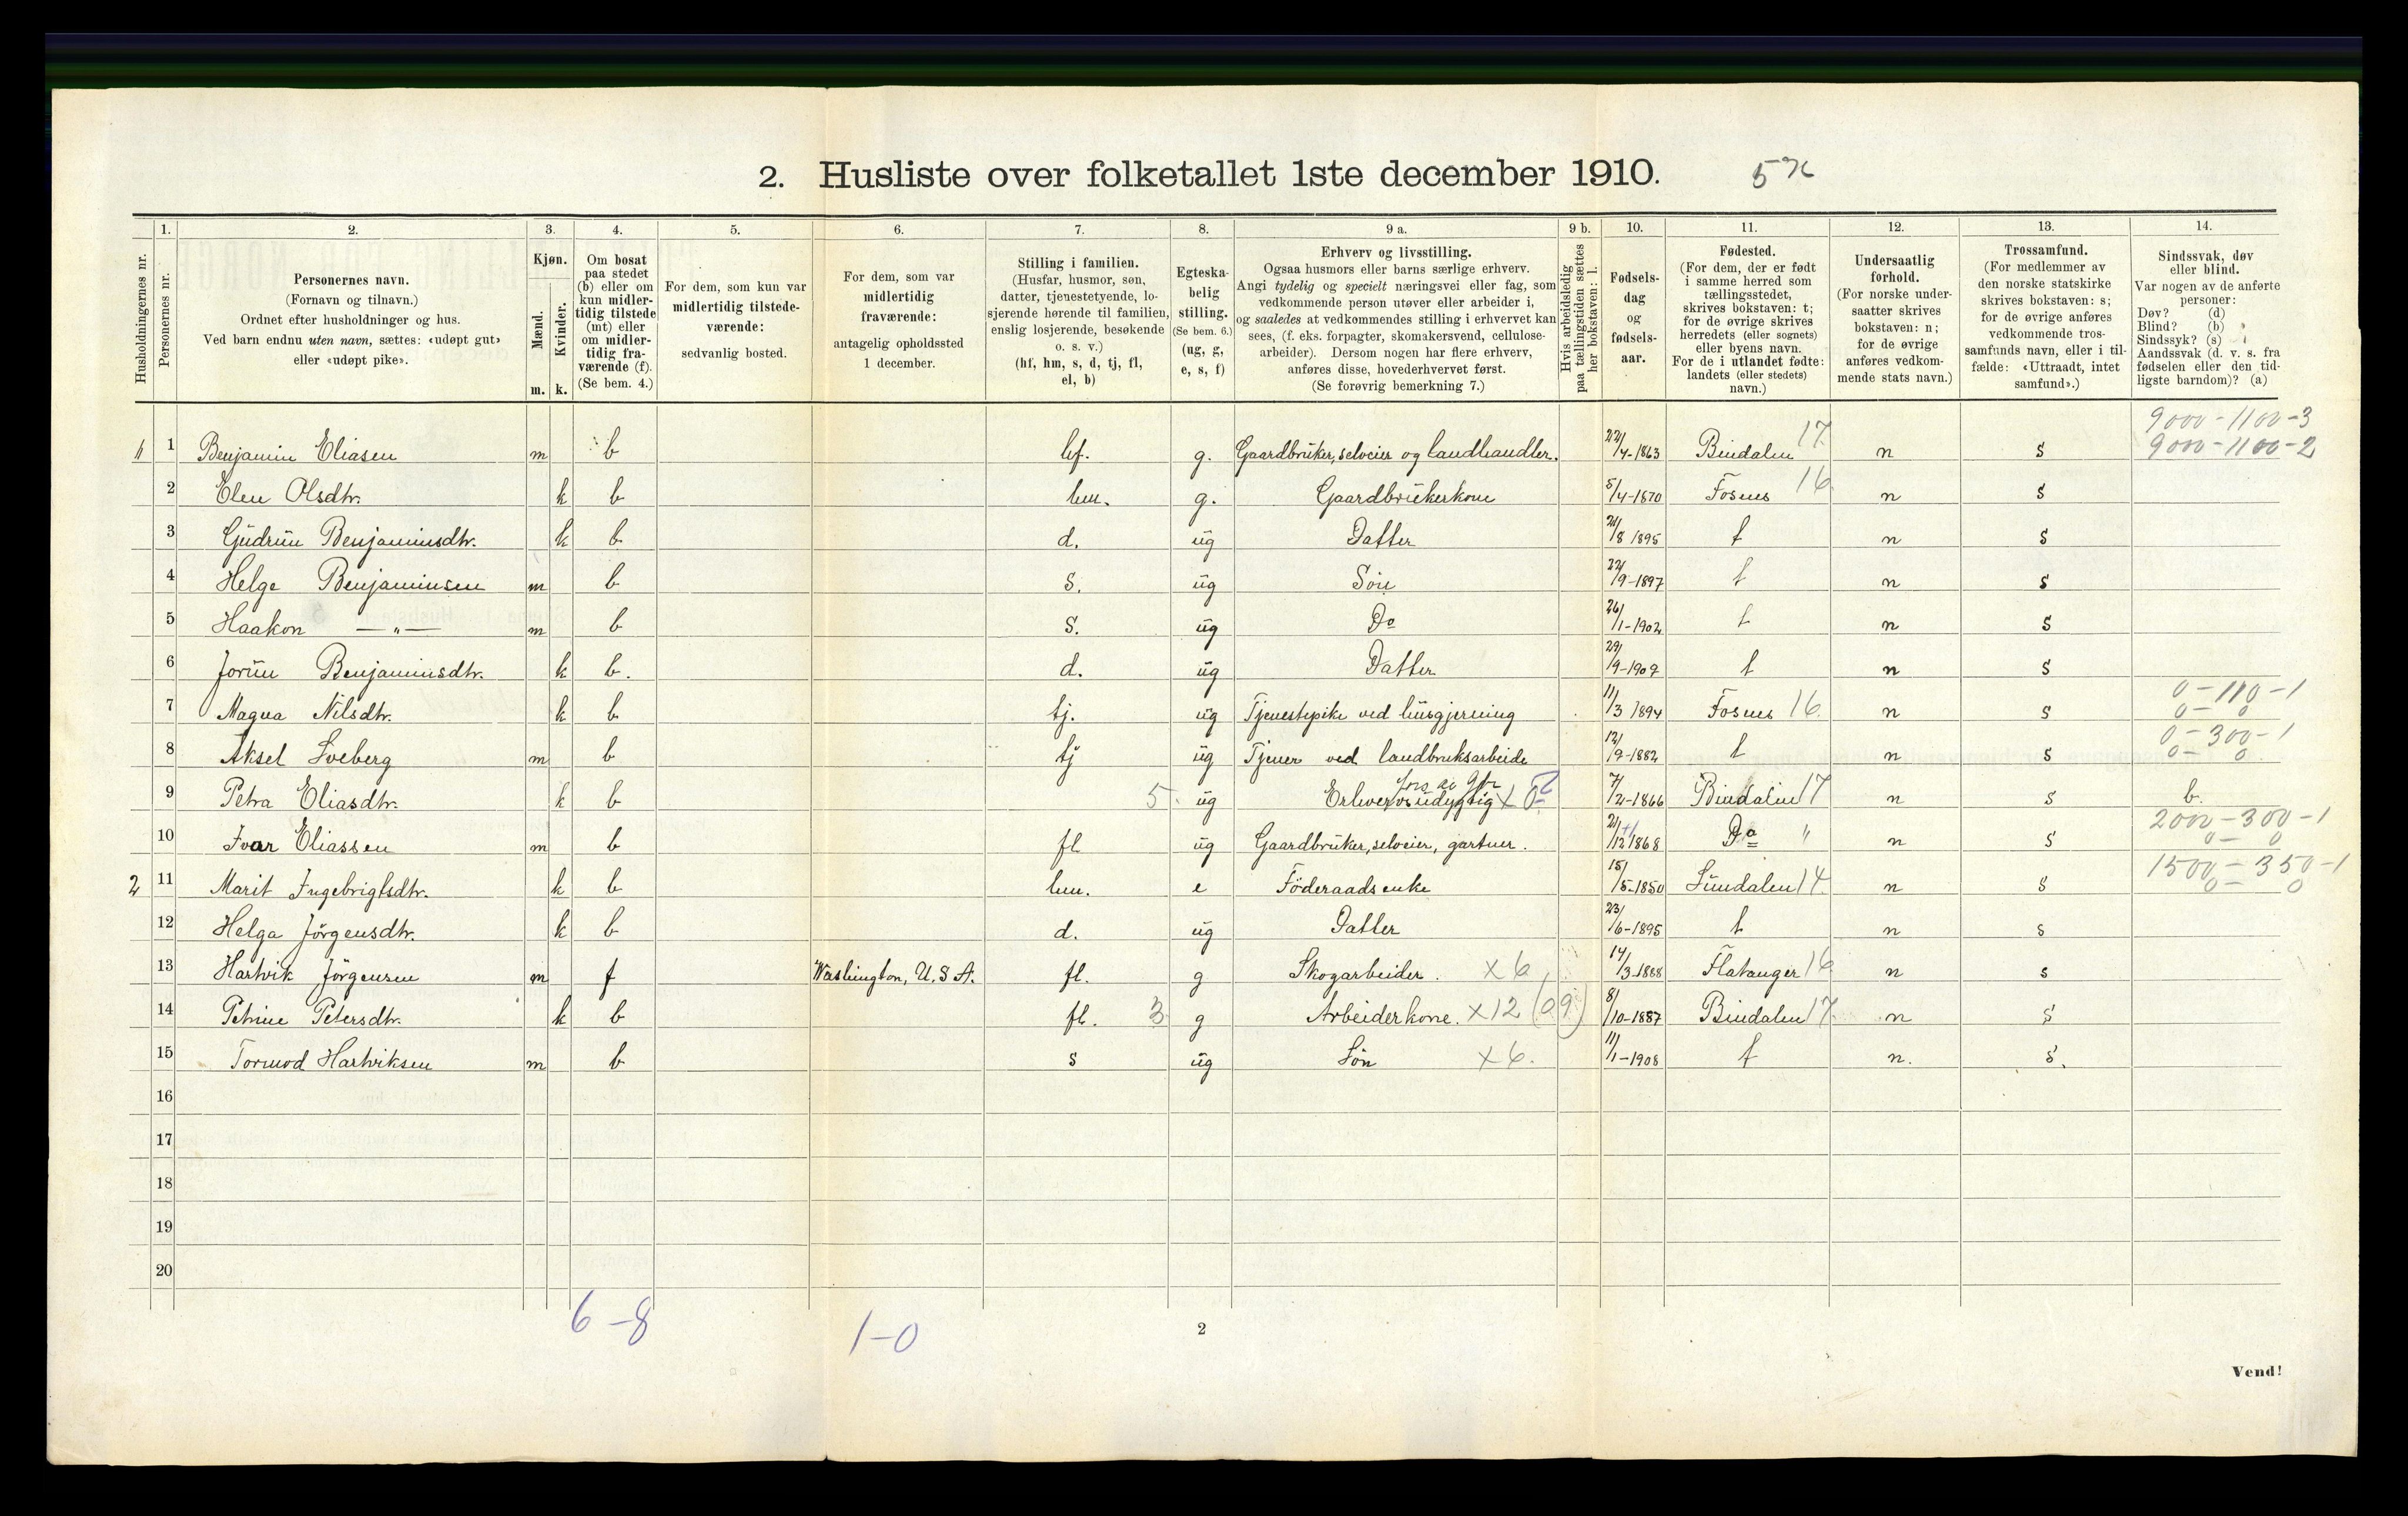 2. Husliste over folketallet 1ste december 1910.
1. 2. 3. 4. 5. 6. 7. 8. 9 a. 9 b. 10. 11. 12. 13. 14.
Husholdningernes nr.
Personernes nr.
Personernes navn.
(Fornavn og tilnavn.)
Ordnet efter husholdninger og hus.
Ved barn endnu uten navn, sættes: «udøpt gut»
eller «udøpt pike».
Kjøn.
Mænd.
Kvinder.
m. k.
Om bosat
paa stedet
(b) eller om
kun midler-
tidig tilstede
(mt) eller
om midler-
tidig fra-
værende (f).
(Se bem. 4.)
For dem, som kun var
midlertidig tilstede-
værende:
sedvanlig bosted.
For dem, som var
midlertidig
fraværende:
antagelig opholdssted
1 december.
Stilling i familien.
(Husfar, husmor, søn,
datter, tjenestetyende, lo-
sjerende hørende til familien,
enslig losjerende, besøkende
o. s. v.)
(hf, hm, s, d, tj, fl,
el, b)
Egteska-
belig
stilling.
(Se bem. 6.)
(ug, g,
e, s, f)
Erhverv og livsstilling.
Ogsaa husmors eller barns særlige erhverv.
Angi tydelig og specielt næringsvei eller fag, som
vedkommende person utøver eller arbeider i,
og saaledes at vedkommendes stilling i erhvervet kan
sees, (f. eks. forpagter, skomakersvend, cellulose-
arbeider). Dersom nogen har flere erhverv,
anføres disse, hovederhvervet først.
(Se forøvrig bemerkning 7.)
Hvis arbeidsledig
paa tællingstiden sættes
her bokstaven: l.
Fødsels-
dag
og
fødsels-
aar.
Fødested.
(For dem, der er født
i samme herred som
tællingsstedet,
skrives bokstaven: t;
for de øvrige skrives
herredets (eller sognets)
eller byens navn.
For de i utlandet fødte:
landets (eller stedets)
navn.)
Undersaatlig
forhold.
(For norske under-
saatter skrives
bokstaven: n;
for de øvrige
anføres vedkom-
mende stats navn.)
Trossamfund.
(For medlemmer av
den norske statskirke
skrives bokstaven: s;
for de øvrige anføres
vedkommende tros-
samfunds navn, eller i til-
fælde: «Uttraadt, intet
samfund».)
Sindssvak, døv
eller blind.
Var nogen av de anførte
personer:
Døv? (d)
Blind? (b)
Sindssyk? (s)
Aandssvak (d. v. s. fra
fødselen eller den tid-
ligste barndom)? (a)
9000-1100-3
1 1 Benjamin Eliasen m b hf. g. Gaardbruker, selveier og landhandler. 22/4-1863 Bindalen 17 n s 9000-1100-2
2 Elen Olsdtr. k b hm. g. Gaardbrukerkone 5/4-1870 Fosnes 16 n s
3 Gudrun Benjaminsdtr. k b d. ug Datter 21/8 1895 t n s
4 Helge Benjaminsen m b s. ug Søn 22/9-1897 t n s
5 Haakon —„— m b s. ug Do 26/1-1902 t n s
6 Jorun Benjaminsdtr. k b. d. ug Datter 29/9-1909 t n s
7 Magna Nilsdtr. k b tj. ug Tjenestepike ved husgjerning 11/3 1894 Fosnes 16 n s 0-110-1
0-0
8 Aksel Sveberg m b tj ug Tjener ved landbruksarbeide 12/9-1882 t n s 0-300-1
0-0
9 Petra Eliasdtr. k b 5 ug Erhvervsudygtig 7/2-1866 Bindalen 17 n s b.
10 Ivar Eliassen m b fl ug Gaardbruker, selveier, gartner. 21/12 1868 Do " n s 2000-300-1
0-0
2 11 Marit Ingebrigtsdtr. k b hm. e Föderaadsenke 15/5-1850 Sundalen 14 n s 1500-350-1
0-0
12 Helga Jörgensdtr. k b d. ug Datter 23/6-1895 t n s
13 Hartvik Jörgensen m f Washington, U.S.A. fl. g Skogarbeider. x6 14/3-1888 Flatanger 16 n s
14 Petrine Petersdtr. k b fl. 3 g Arbeiderkone. x12 (09) 8/10-1887 Bindalen 17 n s
15 Tormod Hartviksen m b s ug Søn x6. 11/1-1908 t n. s.
16
17
18
19
20
6-8 1-0
2
Vend!